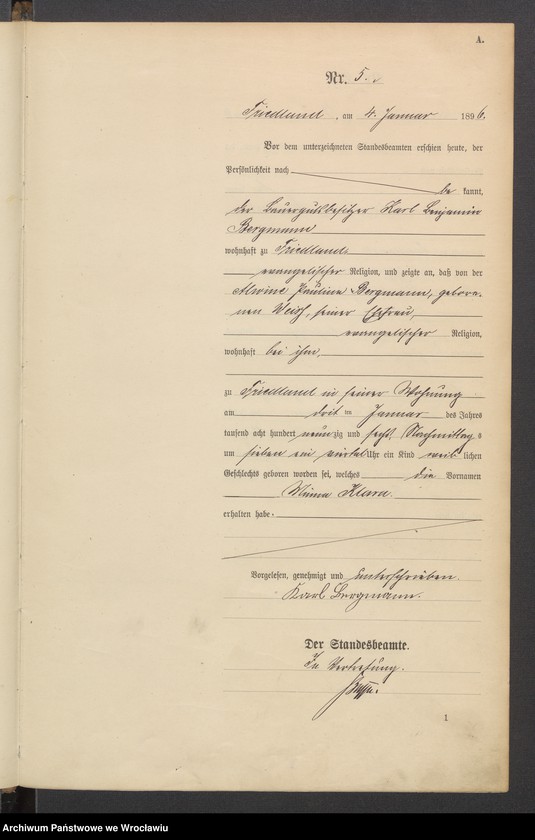 A.
Nr. 5.
Friedland, am 4. Januar 1896.
Vor dem unterzeichneten Standesbeamten erschien heute, der
Persönlichkeit nach
be kannt,
der Bauergutsbesitzer Karl Benjamin
Bergmann
wohnhaft zu Friedland
evangelischer Religion, und zeigte an, daß von der
Alwine Pauline Bergmann, gebore-
nen Weiß, seiner Ehefrau,
evangelischer Religion,
wohnhaft bei ihm,
zu Friedland in seiner Wohnung
am drit ten Januar des Jahres
tausend acht hundert neunzig und sechs Nachmittag s
um sieben ein viertel Uhr ein Kind weib lichen
Geschlechts geboren worden sei, welches die Vornamen
Minna Klara
erhalten habe.
Vorgelesen, genehmigt und unterschrieben.
Karl Bergmann.
Der Standesbeamte.
In Vertretung.
1
Archiwum Państwowe we Wrocławiu